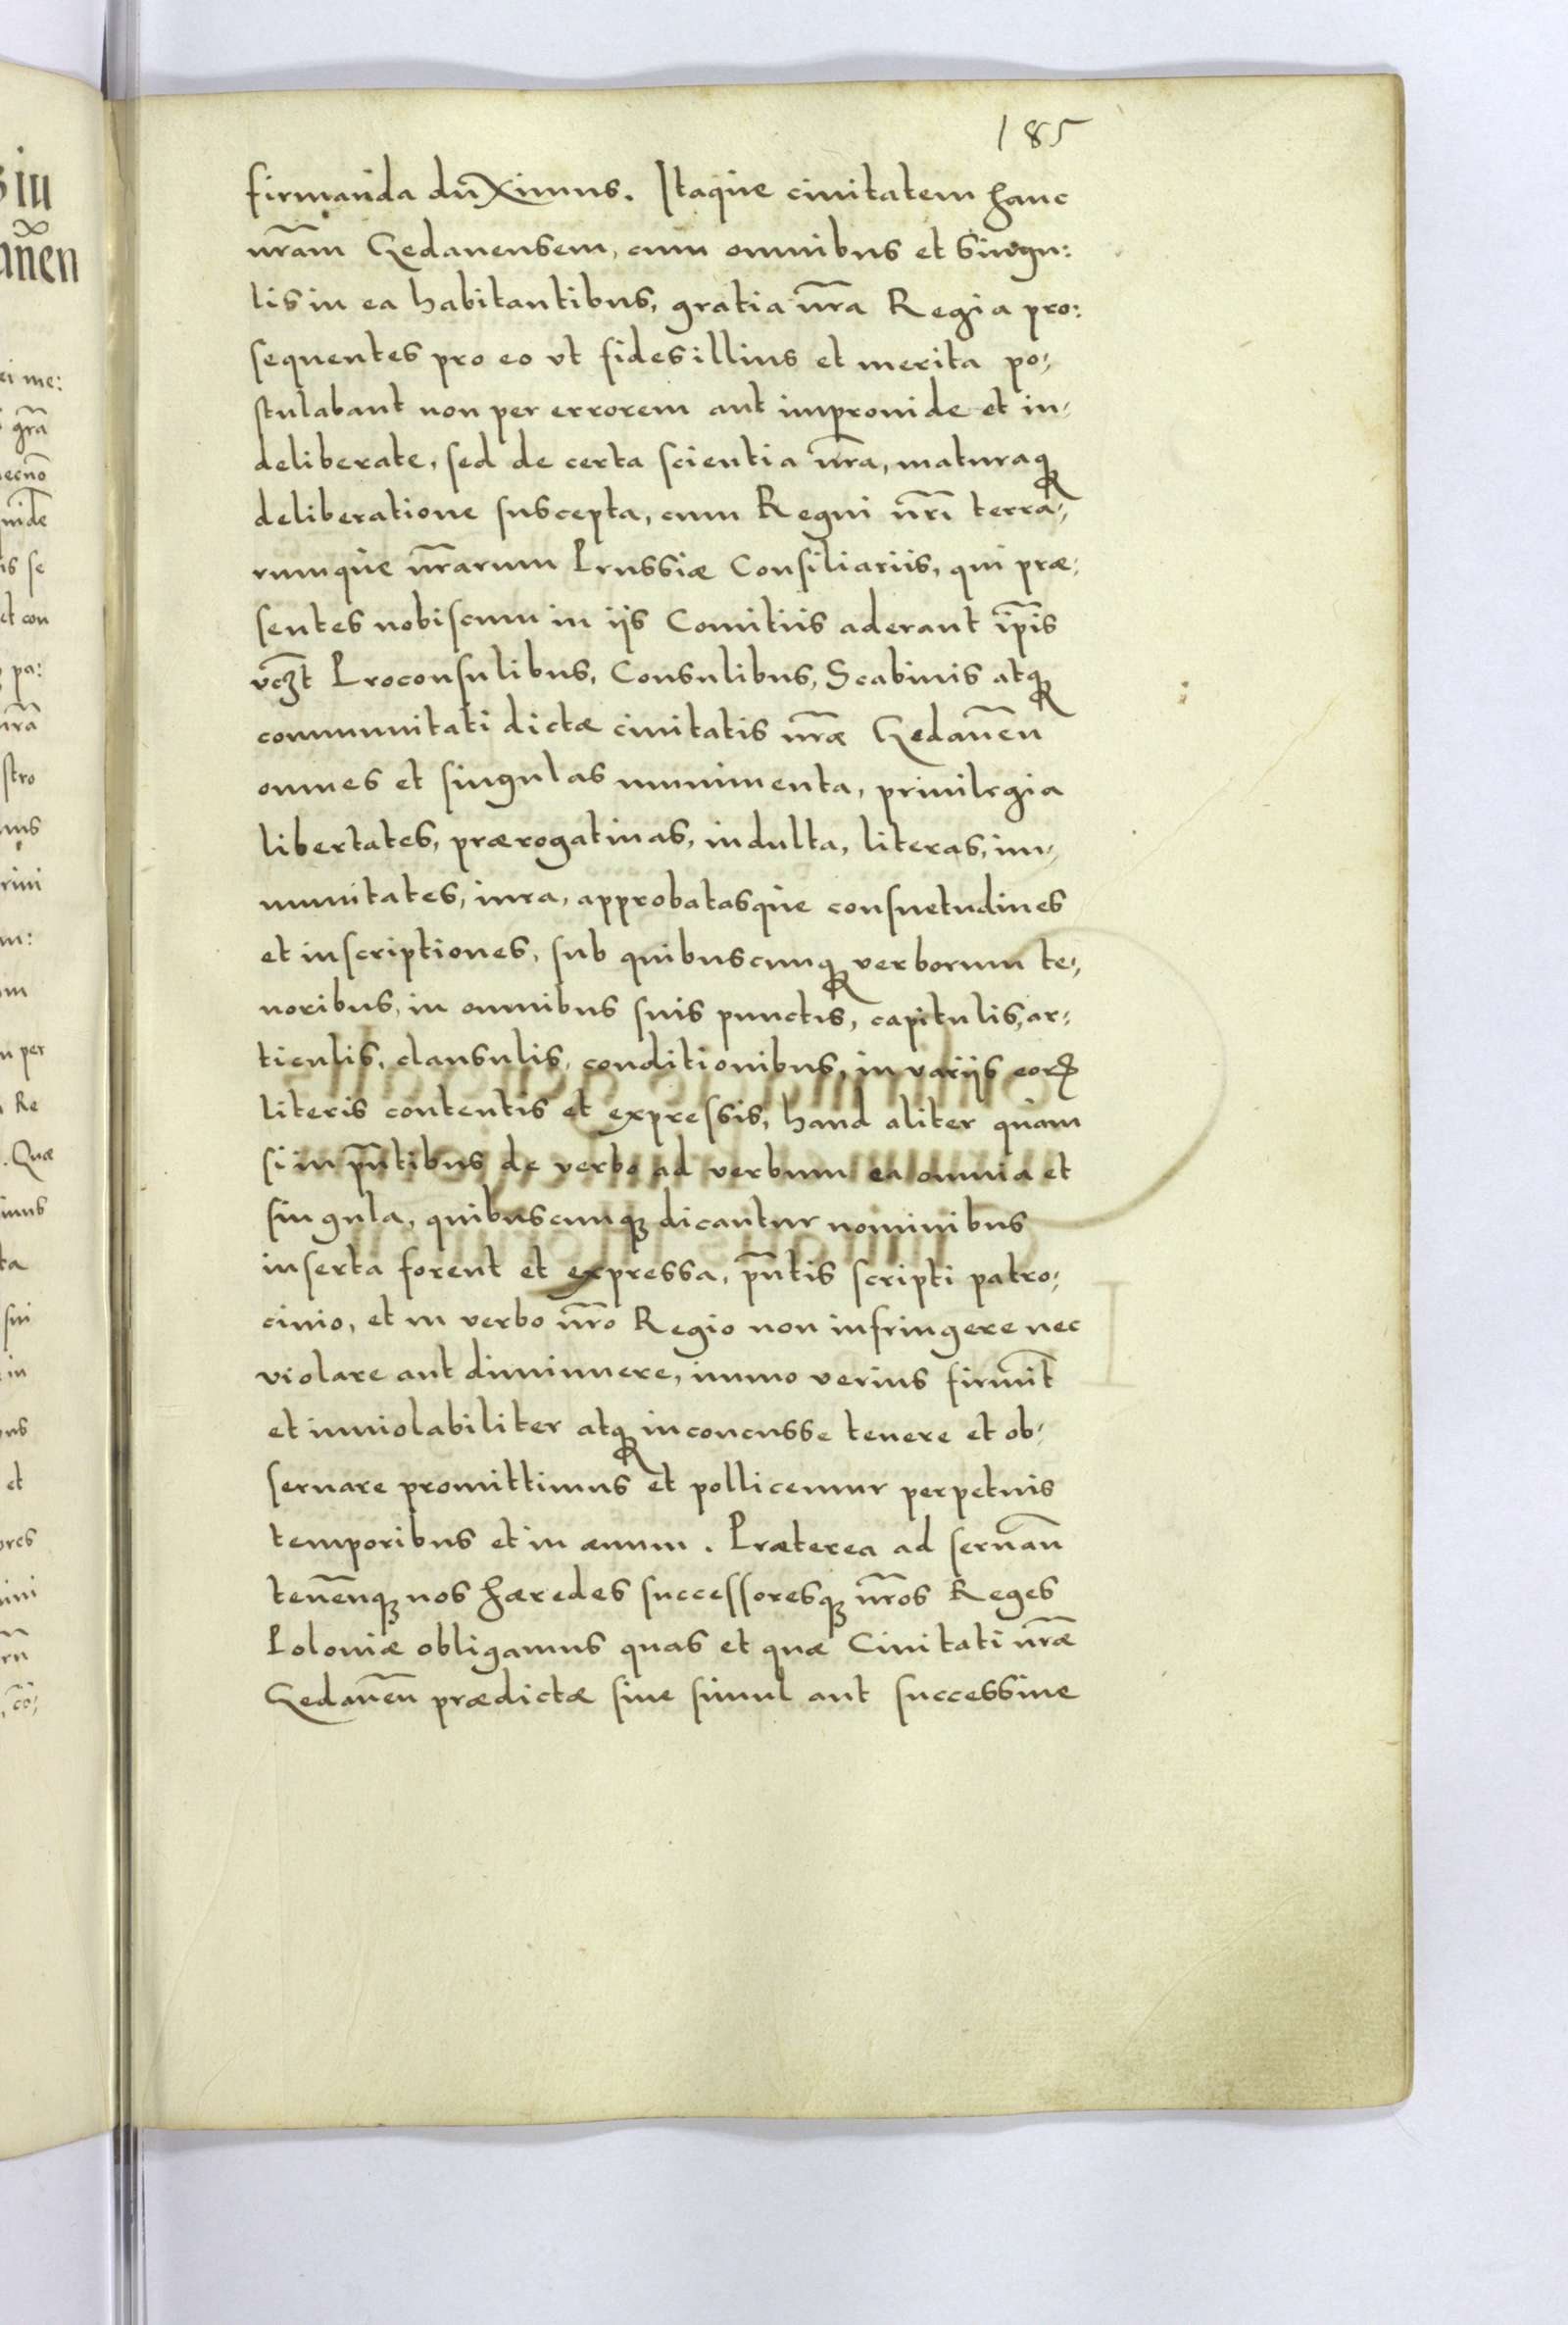 185
firmanda duximus. Itaque civitatem hanc
nr̃am Gedanensem, cum omnibus et singu:
lis in ea habitantibus, gratia nr̃a Regia pro:
sequentes pro eo vt fides illius et merita po-
stulabant non per errorem aut improvide et in-
deliberate, sed de certa scientia nr̃a, maturaq;
deliberatione suscepta, cum Regni nr̃i terra-
rumque nr̃arum Prussiæ Consiliariis, qui præ-
sentes nobiscum in ijs Comitiis aderant ip̃is
vcz̃t Proconsulibus, Consulibus, Scabinis atq;
communitati dictæ civitatis nr̃æ Gedaneñ
omnes et singulas munimenta, privilegia
libertates, prærogativas, indulta, literas, im-
munitates, iura, approbatasque consuetudines
et inscriptiones, sub quibuscunq; verborum te-
noribus, in omnibus suis punctis, capitulis, ar-
ticulis, clausulis, conditionibus, in varijs eorꝝ
literis contentis et expressis, haud aliter quam
si in pñtibus de verbo ad verbum ea omnia et
singula, quibuscunq; dicantur nominibus
inserta forent et expressa, pñtis scripti patro-
cinio, et in verbo nr̃o Regio non infringere nec
violare aut diminuere, immo verius firmit̃
et inviolabiliter atq; inconcusse tenere et ob-
servare promittimus et pollicemur perpetuis
temporibus et in ævum. Præterea ad servañ
teneñq; nos hæredes successoresq; nr̃os Reges
Poloniæ obligamus quas et quæ Civitati nr̃æ
Gedaneñ prædictæ sive simul aut successive